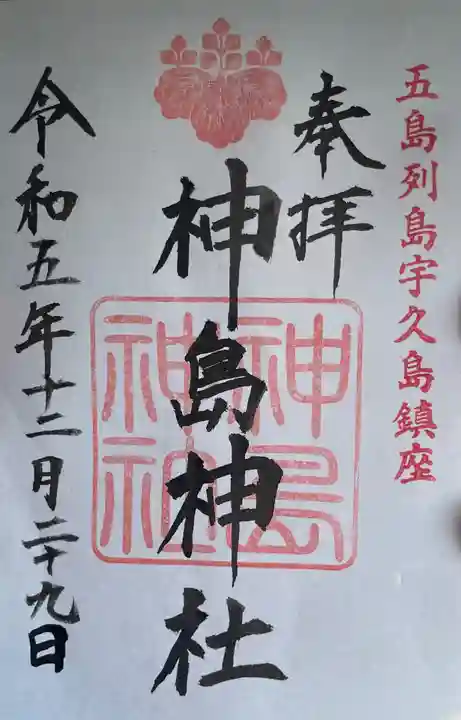 五島列島宇久島鎮座
奉拝
神島神社
神島神社
令和五年十二月二十九日